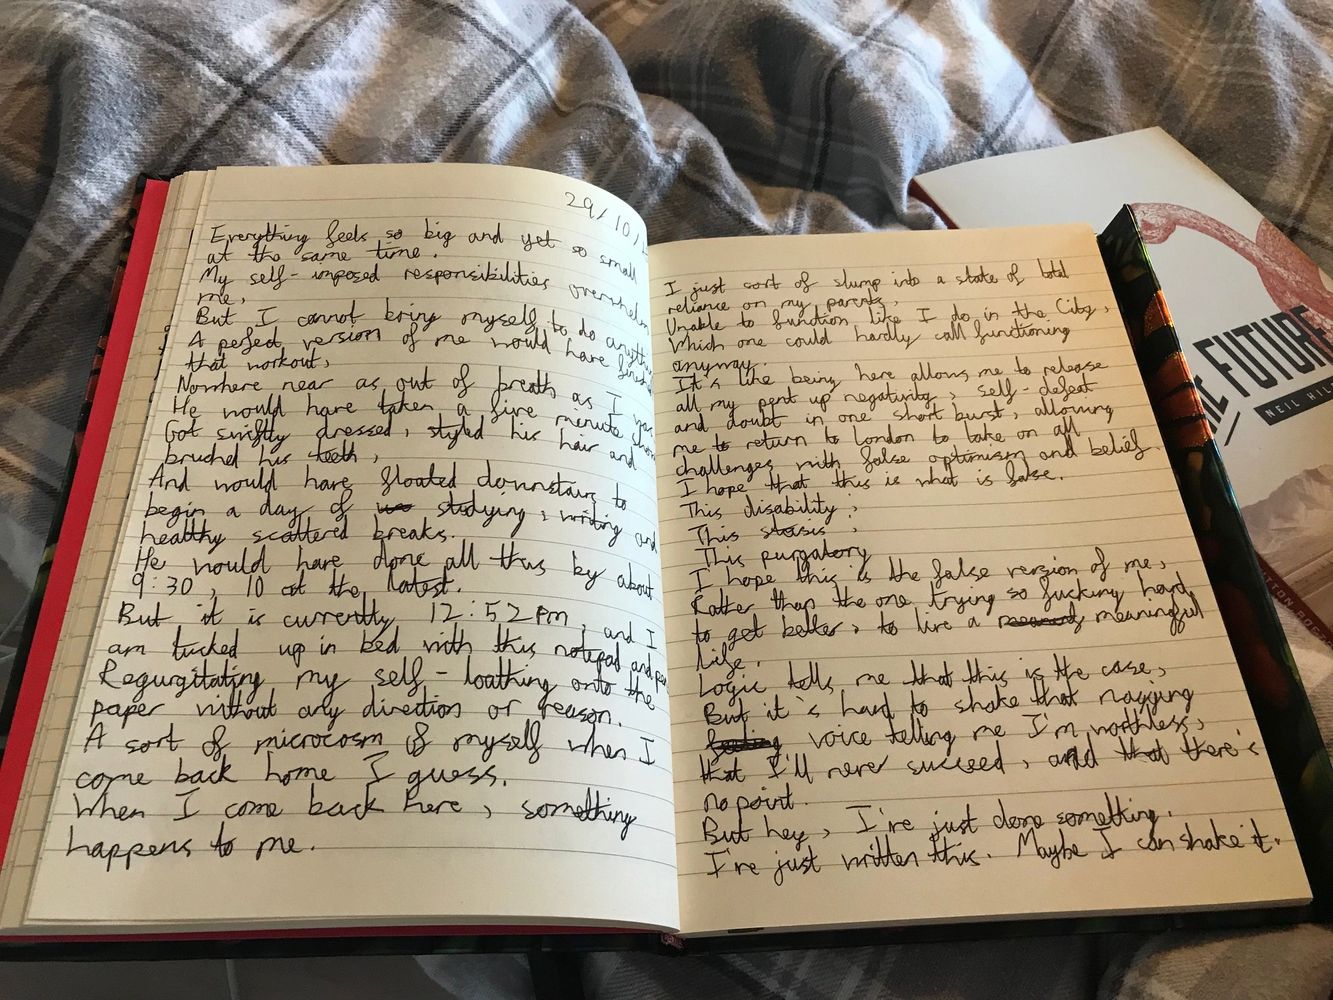 29/10/
Everything feels so big and yet so small
at the same time.
My self-imposed responsibilities overwhelm
me,
But I cannot bring myself to do anything
A perfect version of me would have finished
that workout,
Nowhere near as out of breath as I was
He would have taken a five minute shower
Got swiftly dressed, styled his hair and
brushed his teeth,
And would have floated downstairs to
begin a day of studying, writing and
healthy scattered breaks.
He would have done all this by about
9:30, 10 at the latest.
But it is currently 12:52pm, and I
am tucked up in bed with this notepad and pen
Regurgitating my self-loathing onto the
paper without any direction or reason.
A sort of microcosm of myself when I
come back home I guess.
When I come back here, something
happens to me.
I just sort of slump into a state of total
reliance on my parents,
Unable to function like I do in the City,
Which one could hardly call functioning
anyway.
It's like being here allows me to release
all my pent up negativity, self-defeat
and doubt in one short burst, allowing
me to return to London to take on all
challenges with false optimism and belief.
I hope that this is what is false.
This disability;
This stasis;
This purgatory
I hope this is the false version of me,
Rather than the one trying so fucking hard
to get better, to live a meaningful
life.
Logic tells me that this is the case,
But it's hard to shake that nagging
voice telling me I'm worthless,
that I'll never succeed, and that there's
no point.
But hey, I've just done something.
I've just written this. Maybe I can shake it.
THE FUTURE
NEIL HIL